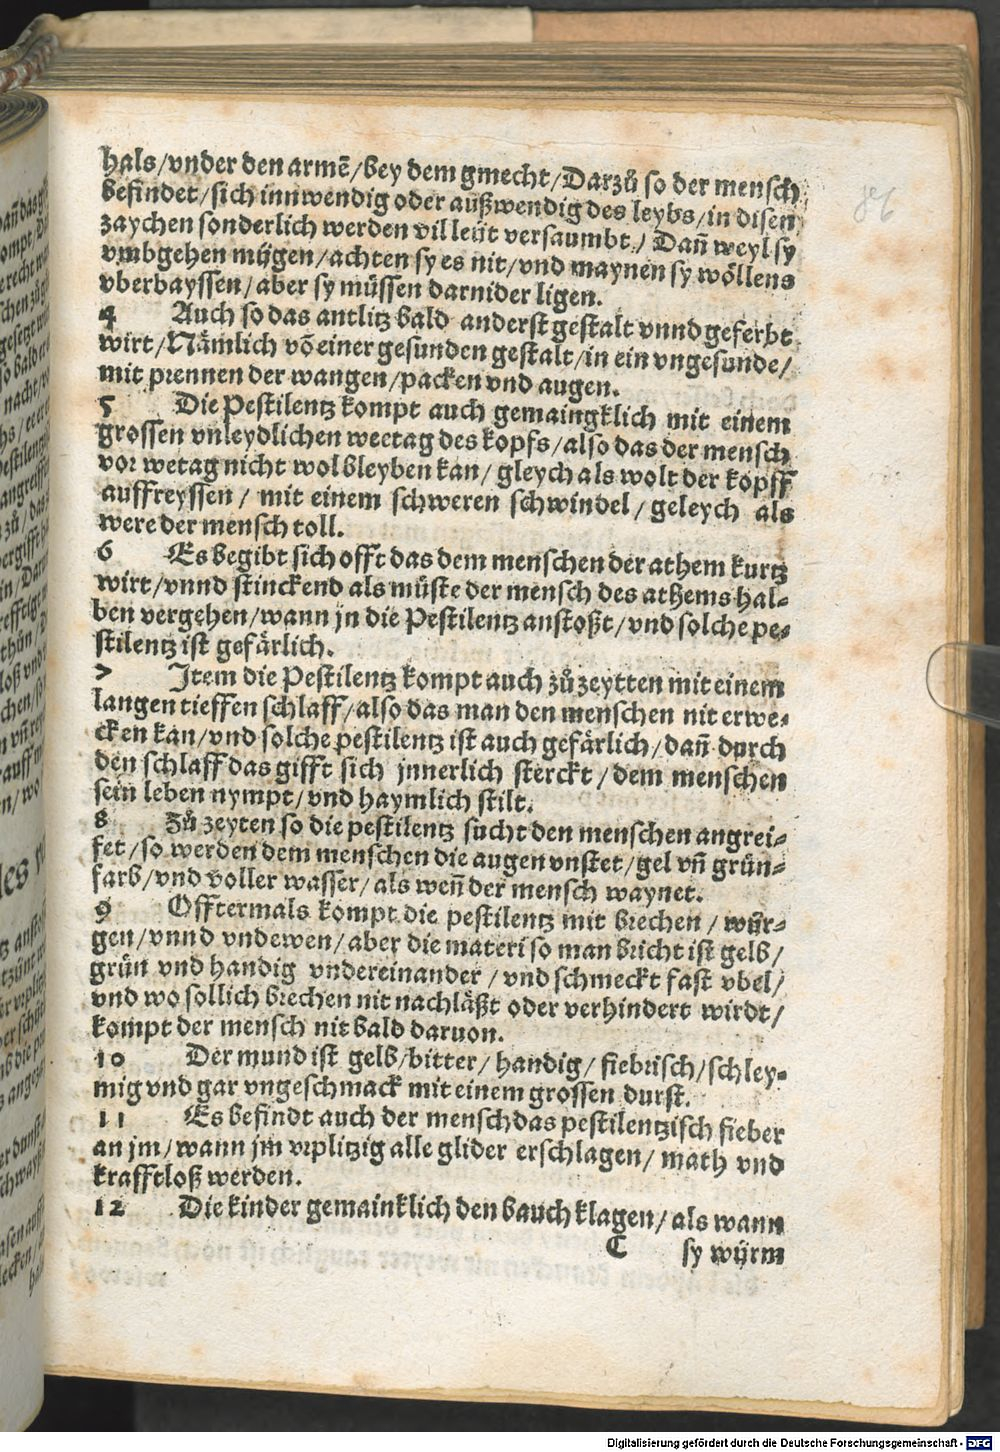 hals/vnder den armē/bey dem gmecht/Darzů so der mensch
befindet/sich innwendig oder außwendig des leybs/in disen
zaychen sonderlich werden vil leüt versaumbt/Dañ weyl sy
vmbgehen mügen/achten sy es nit/vnd maynen sy wöllens
vberbayssen/aber sy müssen darnider ligen.
4 Auch so das antlitz bald anderst gestalt vnnd geferbt
wirt/Nämlich vō einer gesunden gestalt/in ein vngesunde/
mit prennen der wangen/packen vnd augen.
5 Die Pestilentz kompt auch gemaingklich mit einem
grossen vnleydlichen weetag des kopfs/also das der mensch
vor wetag nicht wol bleyben kan/gleych als wolt der kopff
auffreyssen/mit einem schweren schwindel/geleych als
were der mensch toll.
6 Es begibt sich offt das dem menschen der athem kurtz
wirt/vnnd stinckend als müste der mensch des athems hal-
ben vergehen/wann jn die Pestilentz anstoßt/vnd solche pe-
stilentz ist gefärlich.
7 Item die Pestilentz kompt auch zů zeytten mit einem
langen tieffen schlaff/also das man den menschen nit erwe-
cken kan/vnd solche pestilentz ist auch gefärlich/dañ durch
den schlaff das gifft sich jnnerlich sterckt/dem menschen
sein leben nympt/vnd haymlich stilt.
8 Zů zeyten so die pestilentz sucht den menschen angrei-
fet/so werden dem menschen die augen vnstet/gel vñ grün-
farb/vnd voller wasser/als weñ der mensch waynet.
9 Offtermals kompt die pestilentz mit brechen/wür-
gen/vnnd vndewen/aber die materi so man bricht ist gelb/
grün vnd handig vndereinander/vnd schmeckt fast vbel/
vnd wo sollich brechen nit nachläßt oder verhindert wirdt/
kompt der mensch nit bald daruon.
10 Der mund ist gelb/bitter/handig/fiebrisch/schley-
mig vnd gar vngeschmack mit einem grossen durst.
11 Es befindt auch der mensch das pestilentzisch fieber
an jm/wann jm vrplitzig alle glider erschlagen/math vnd
krafftloß werden.
12 Die kinder gemainklich den bauch klagen/als wann
C sy würm
Digitalisierung gefördert durch die Deutsche Forschungsgemeinschaft - DFG